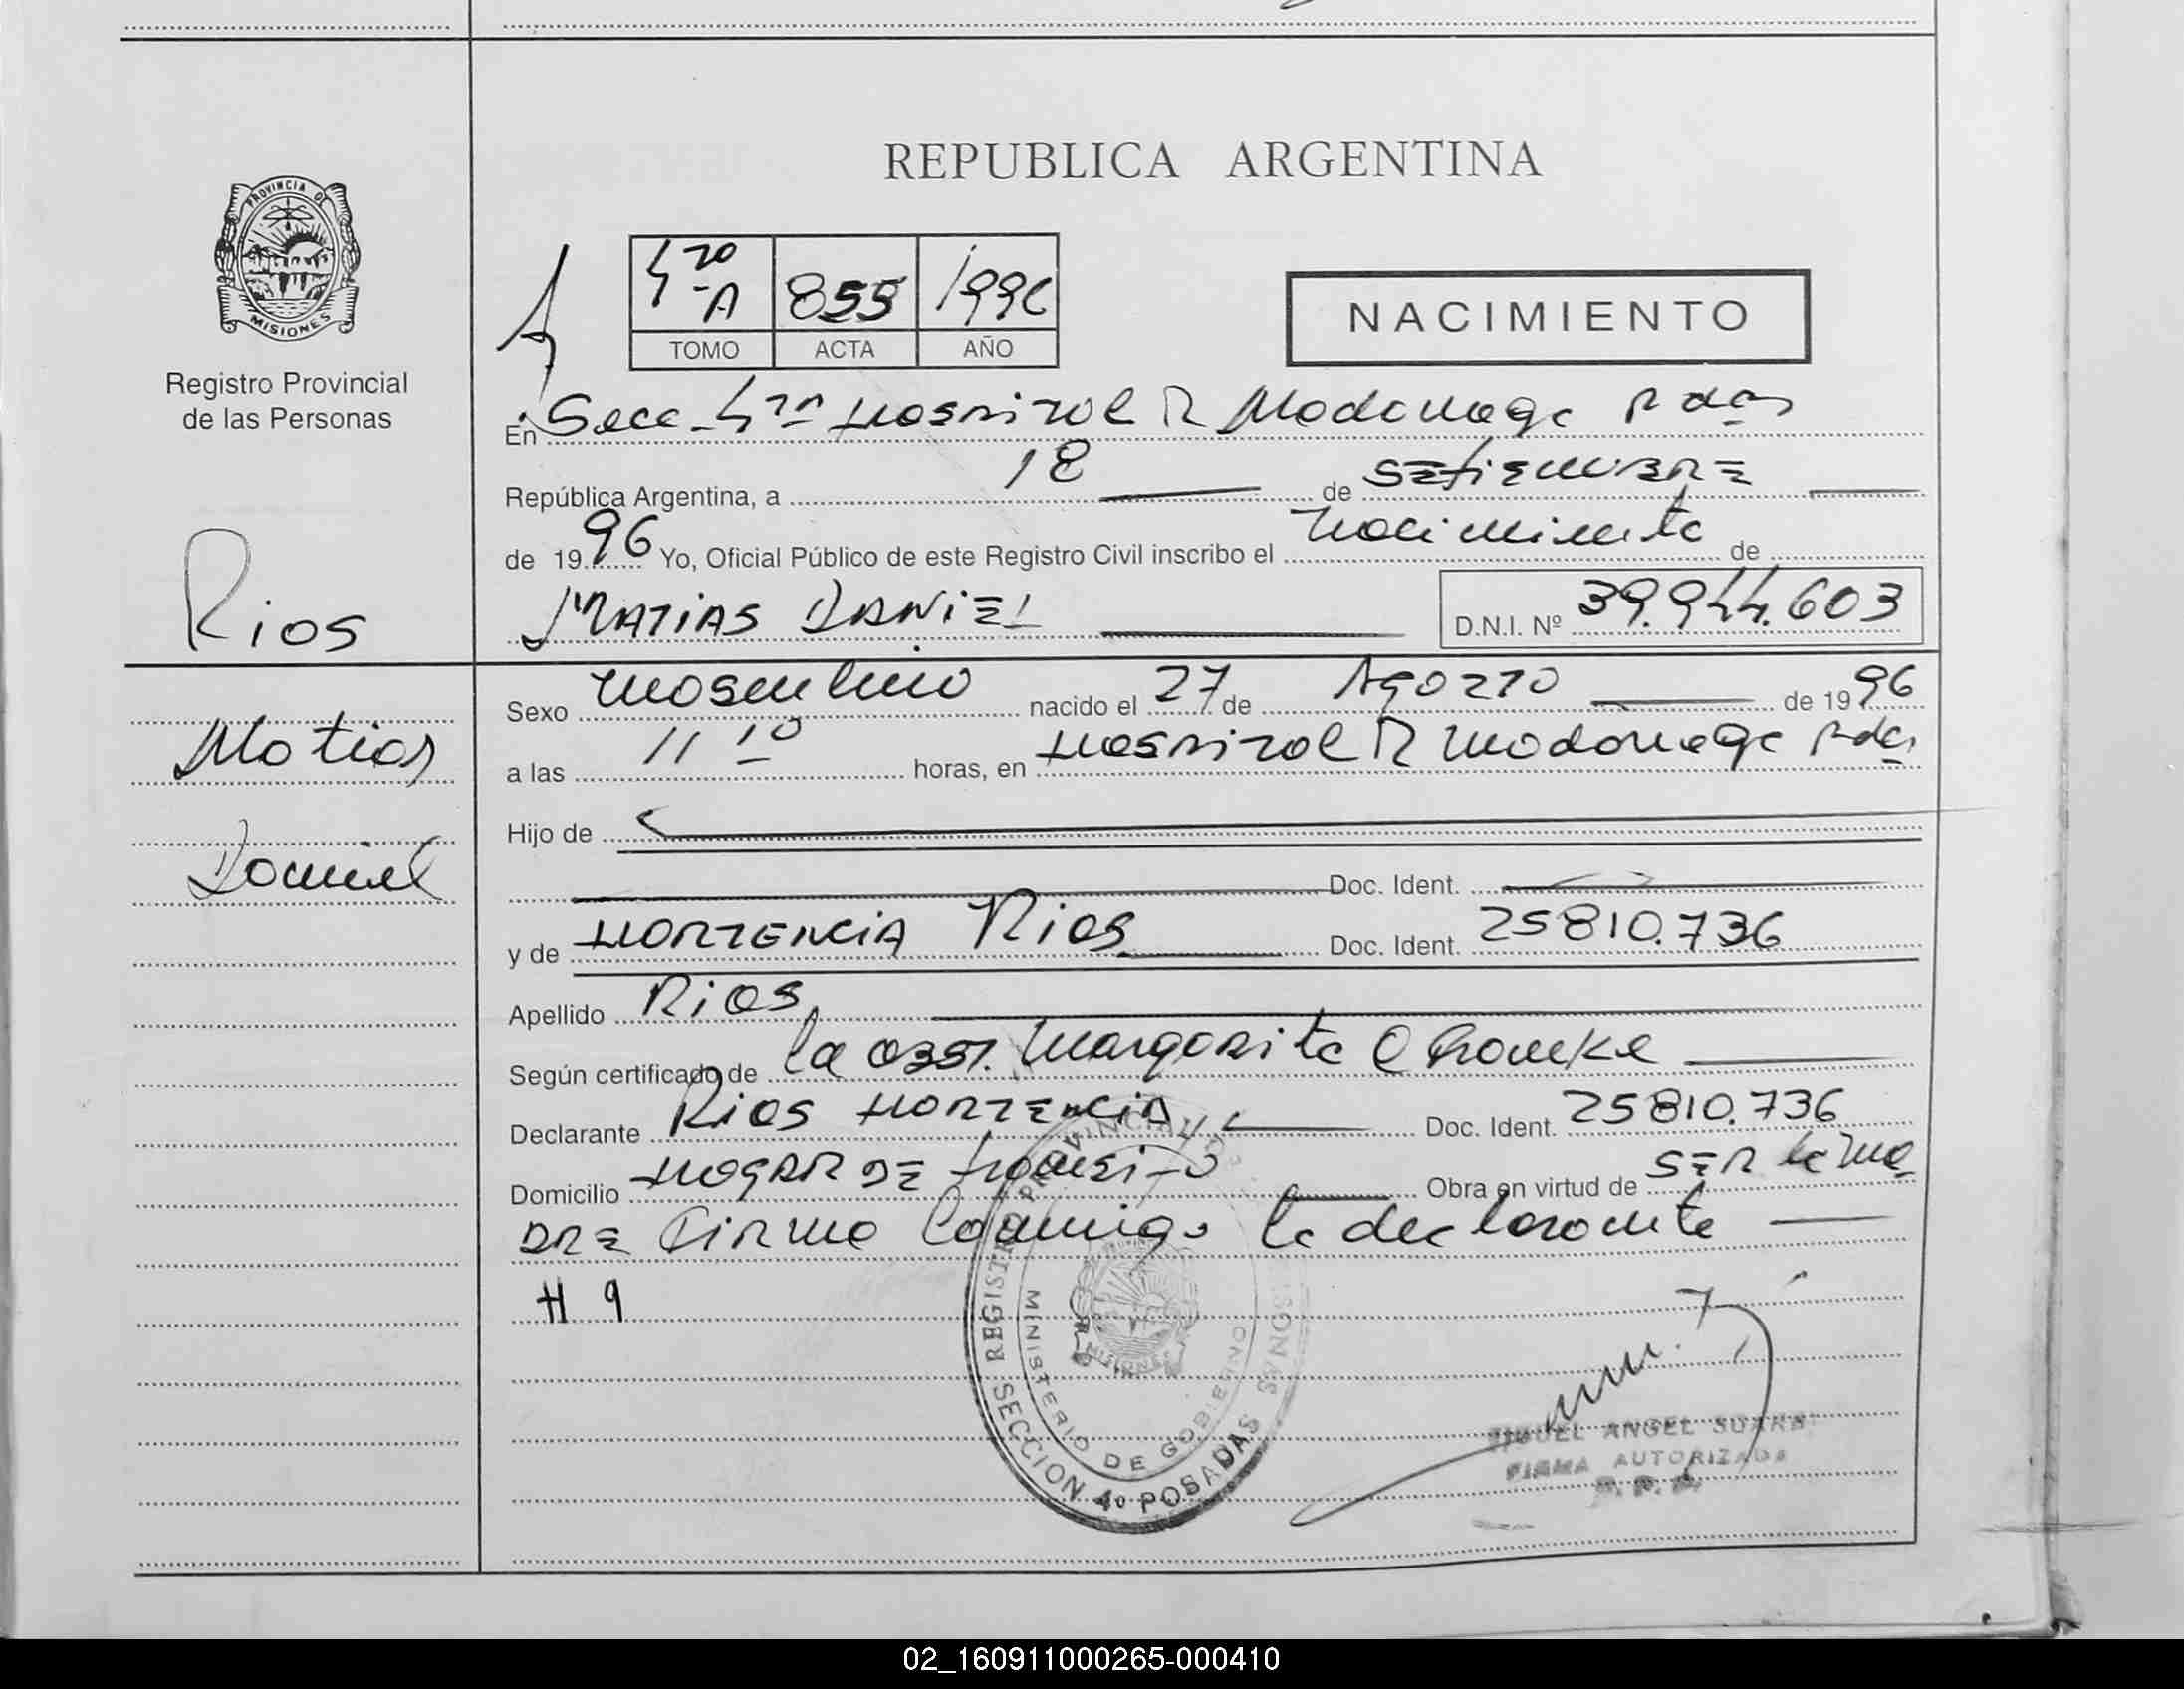 REPUBLICA ARGENTINA
PROVINCIA DE
MISIONES
Registro Provincial
de las Personas
4ta -A 855 1996
TOMO ACTA AÑO
NACIMIENTO
En Secc. 4ta Hospital R Madariaga Pdas
República Argentina, a 18 de SETIEMBRE
de 1996 Yo, Oficial Público de este Registro Civil inscribo el nacimiento de
Rios
MATIAS DANIEL D.N.I. Nº 39.944.603
Sexo masculino nacido el 27 de Agosto de 1996
Matias
a las 11 10 horas, en Hospital R Madariaga Pdas
Hijo de
Daniel
Doc. Ident.
y de HORTENCIA Rios Doc. Ident. 25810.736
Apellido Rios
Según certificado de la obst. Margarita
Declarante Rios HORTENCIA Doc. Ident. 25810.736
Domicilio HOGAR DE transito Obra en virtud de SER la ma
DRE Firma Conmigo la declarante
H 9
REGISTRO PROVINCIAL
MINISTERIO DE GOBIERNO
MISIONES
SECCION 4º POSADAS
MIGUEL ANGEL
FIRMA AUTORIZADA
02_160911000265-000410